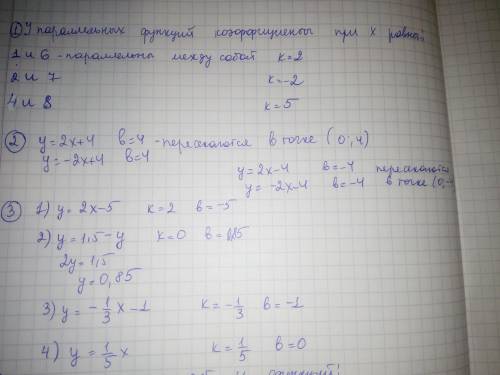 ① У параллельных функций коэффициенты при х равны.
1 и 6 - параллельны между собой k=2
2 и 7 k=-2
4 и 8 k=5
② y=2x+4 b=4 - пересекаются в точке (0;4)
y=-2x+4 b=4
y=2x-4 b=-4 пересекаются
y=-2x-4 b=-4 в точке (0;-
③ 1) y=2x-5 k=2 b=-5
2) y=1,5-y k=0 b=0,85
2y=1,5
y=0,85
3) y=-1/3 x-1 k=-1/3 b=-1
4) y=1/5 x k=1/5 b=0